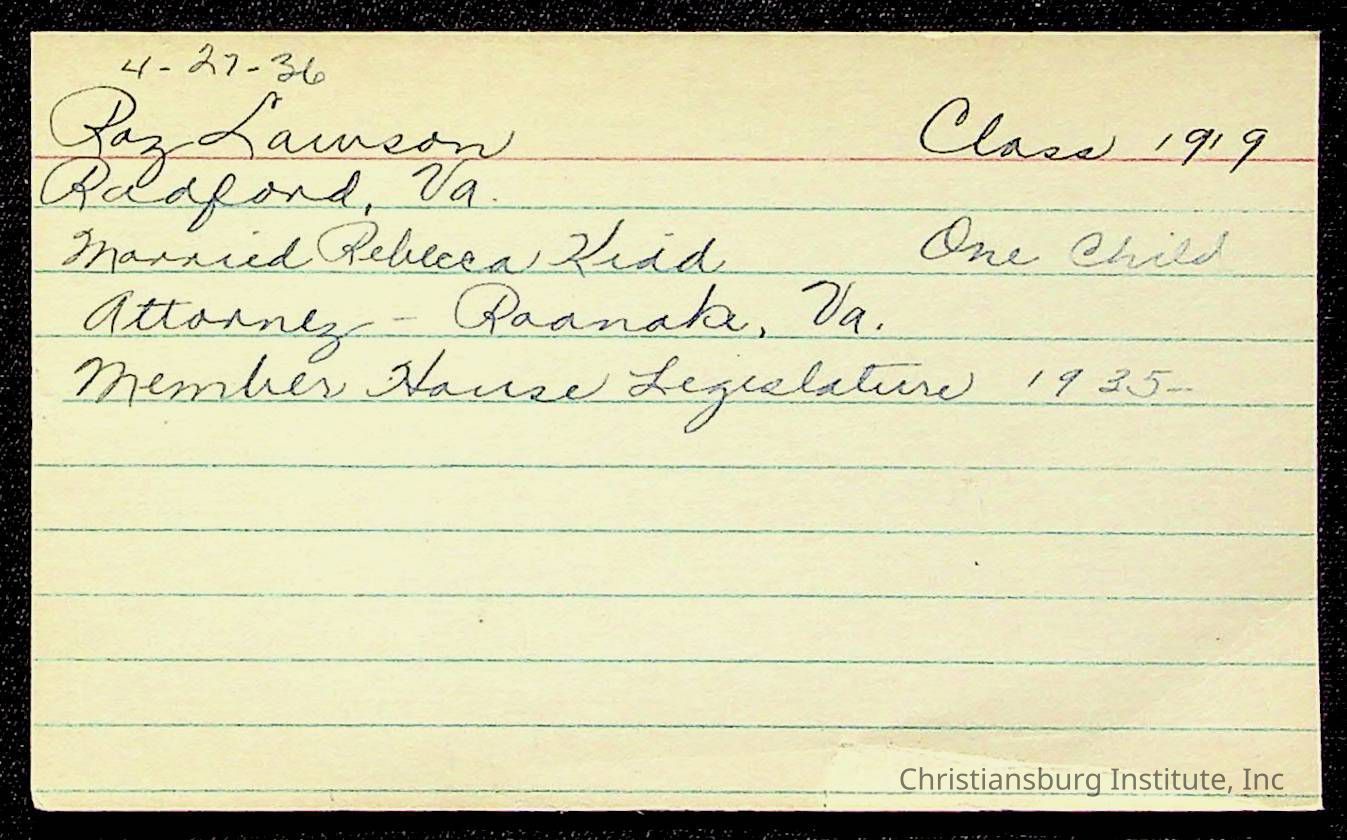 4-27-36
Roy Lawson Class 1919
Radford, Va.
Married Rebecca Kidd One Child
Attorney - Roanoke, Va.
Member House Legislature 1935-
Christiansburg Institute, Inc